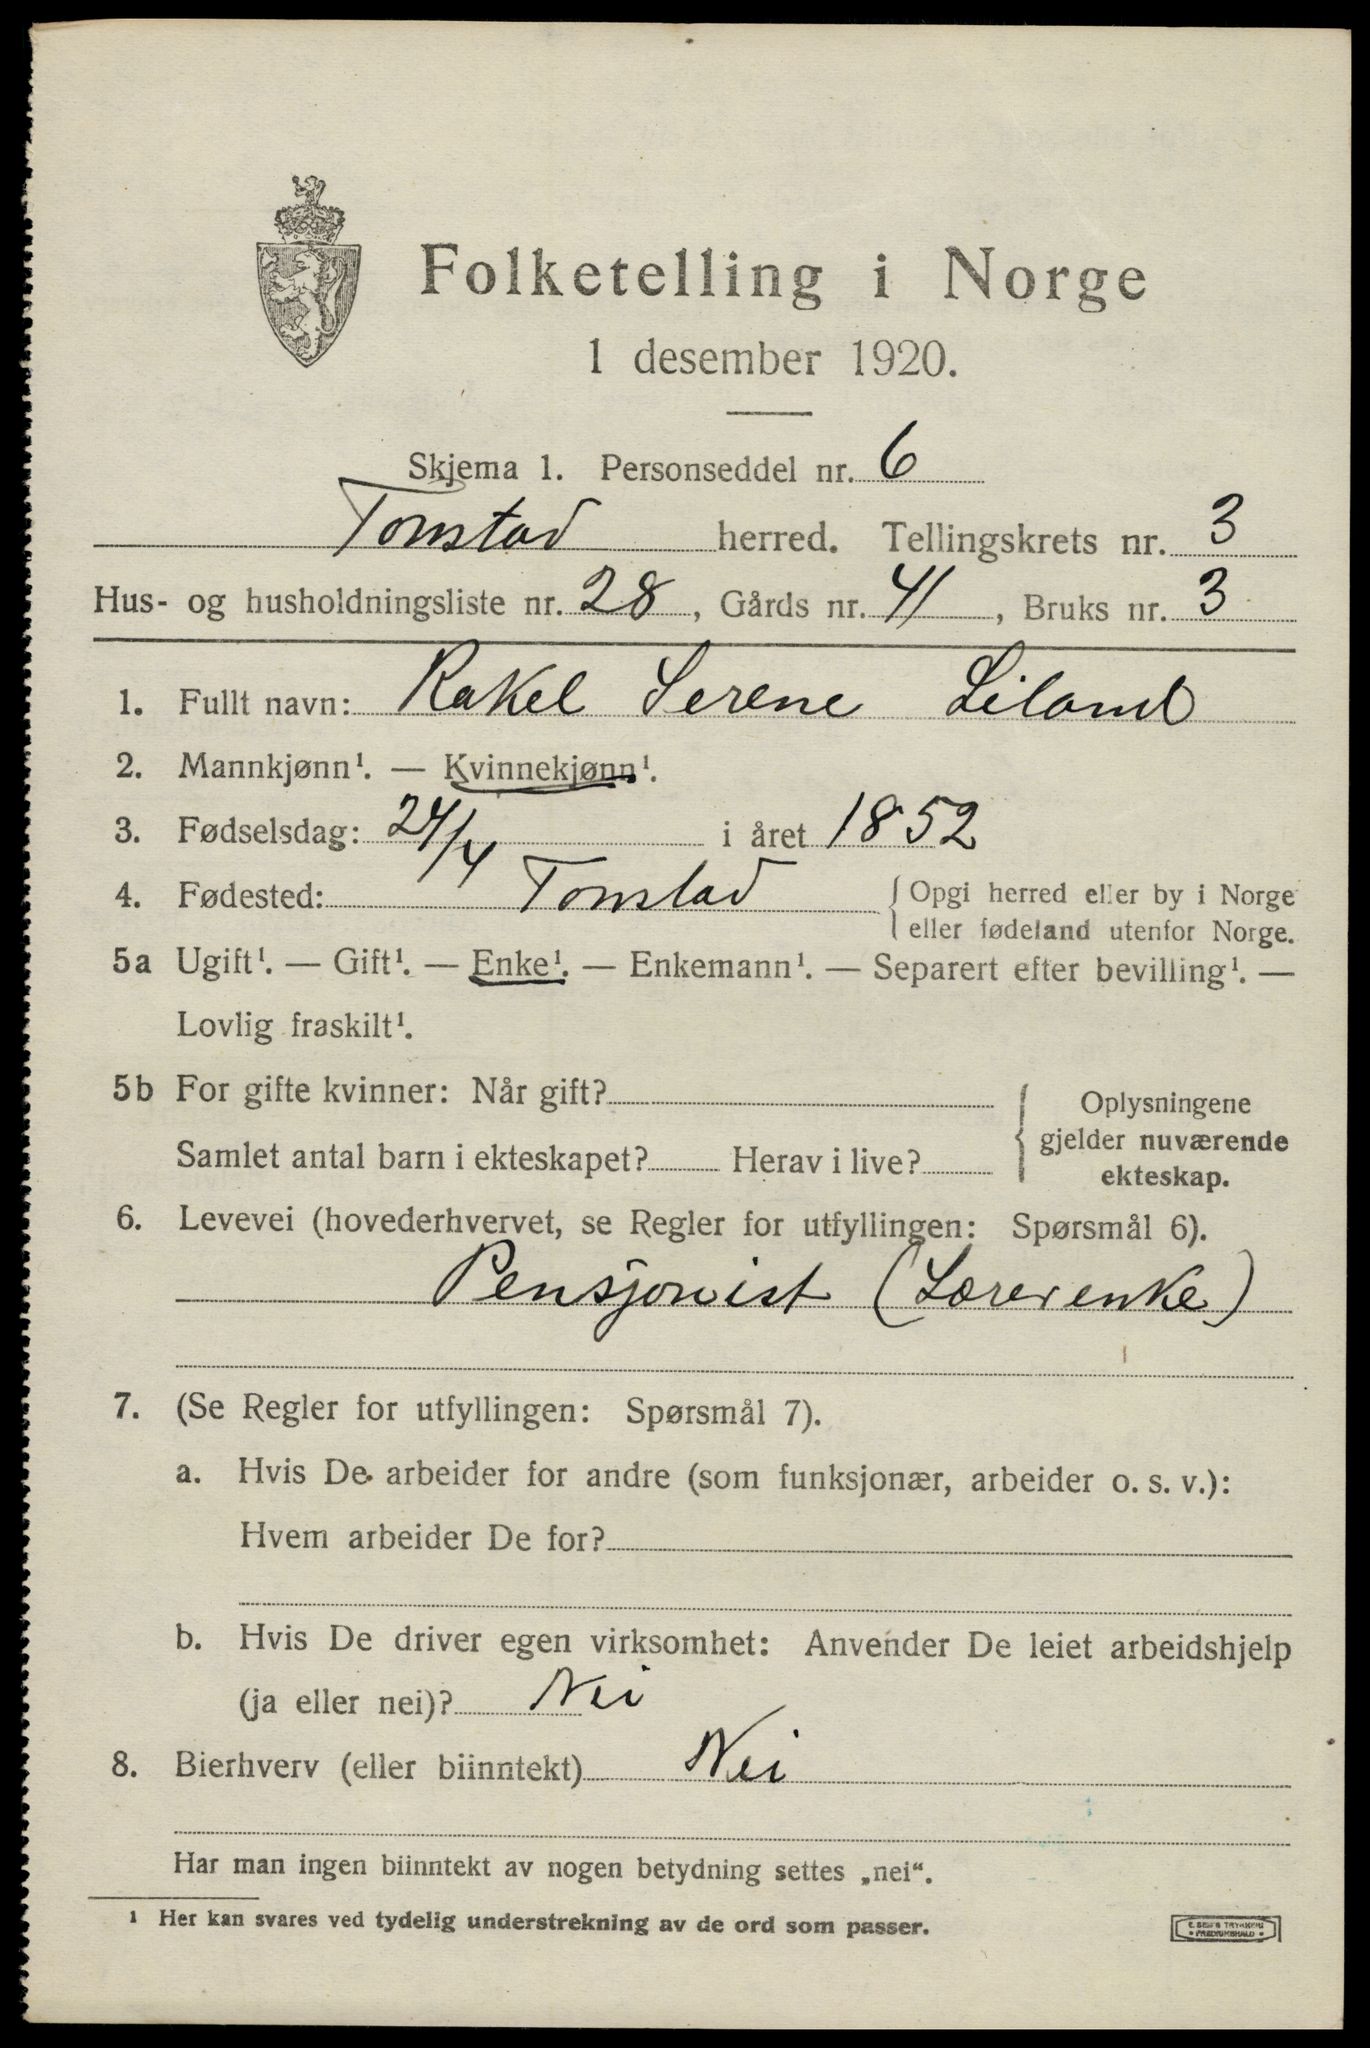 Folketelling i Norge
1 desember 1920.
Skjema 1. Personseddel nr. 6
Tonstad herred. Tellingskrets nr. 3
Hus- og husholdningsliste nr. 28, Gårds nr. 41, Bruks nr. 3
1. Fullt navn: Rakel Serene Liland
2. Mannkjønn¹. — Kvinnekjønn¹.
3. Fødselsdag: 24/4 i året 1852
4. Fødested: Tonstad { Opgi herred eller by i Norge
eller fødeland utenfor Norge.
5a Ugift¹. — Gift¹. — Enke¹. — Enkemann¹. — Separert efter bevilling¹. —
Lovlig fraskilt¹.
5b For gifte kvinner: Når gift?
Samlet antal barn i ekteskapet? Herav i live?
Oplysningene
gjelder nuværende
ekteskap.
6. Levevei (hovederhvervet, se Regler for utfyllingen: Spørsmål 6).
Pensjonist (Lærerenke)
7. (Se Regler for utfyllingen: Spørsmål 7).
a. Hvis De arbeider for andre (som funksjonær, arbeider o. s. v.):
Hvem arbeider De for?
b. Hvis De driver egen virksomhet: Anvender De leiet arbeidshjelp
(ja eller nei)? Nei
8. Bierhverv (eller biinntekt) Nei
Har man ingen biinntekt av nogen betydning settes „nei“.
¹ Her kan svares ved tydelig understrekning av de ord som passer.
E. SEM'S TRYKKERI
FREDRIKSHALD